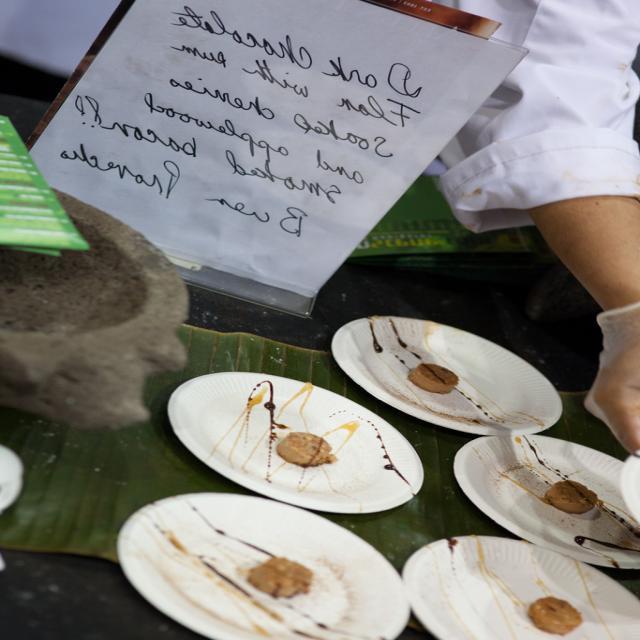 Dark Chocolate
Flan with rum
Soaked cherries
and applewood
smoked bacon!!
Buen Provecho